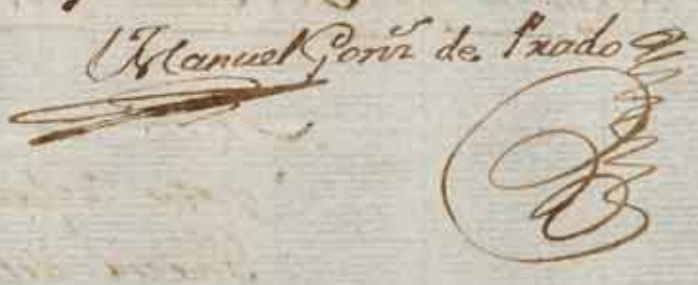 Manuel Gonz de Prado